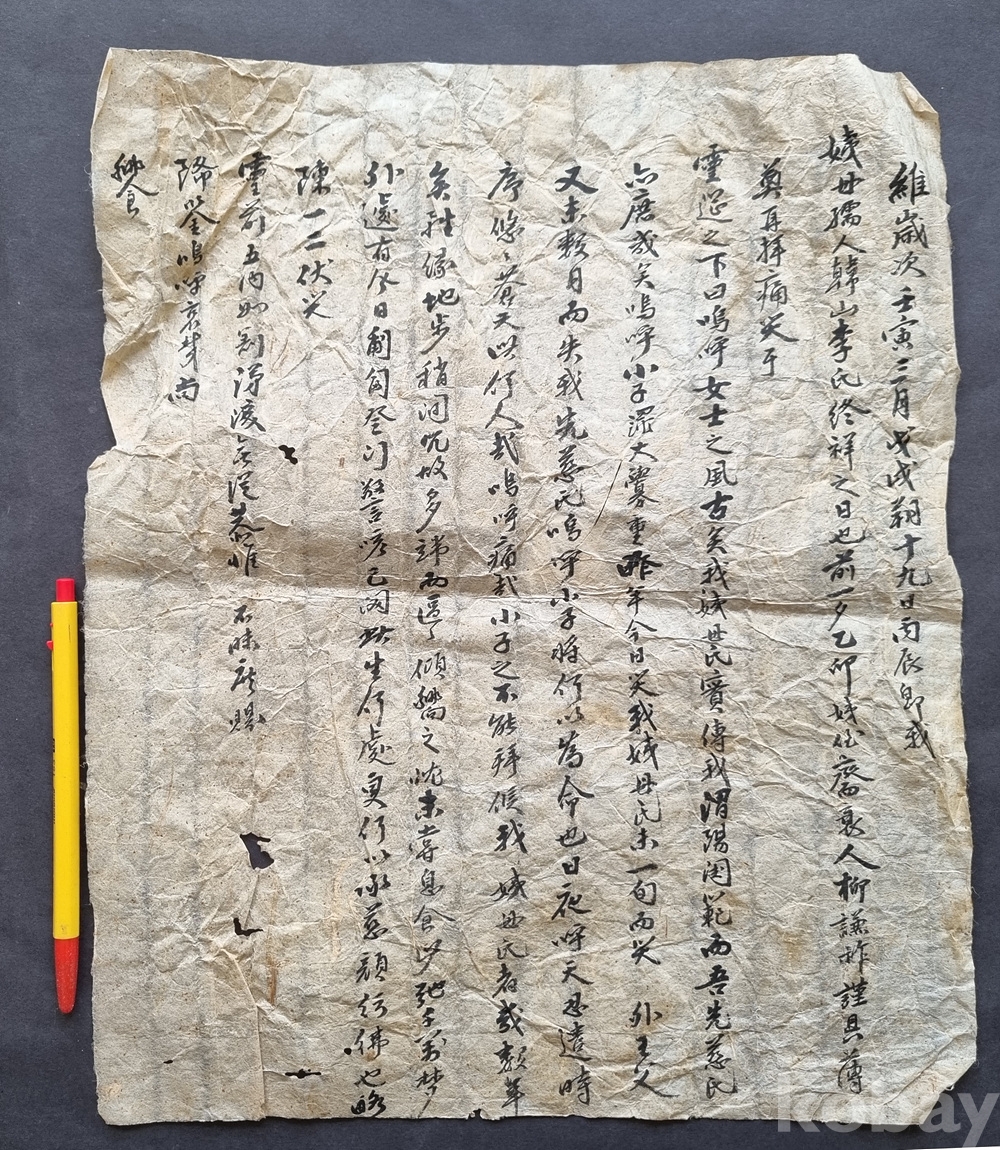 維歲次壬寅三月戊戌朔十九日丙辰卽我
姨母孺人韓山李氏終祥之日也前一夕乙卯姨侄齋衰人柳謙祚謹具薄
奠再拜痛哭于
靈筵之下曰嗚呼女士之風古矣我姨母氏實傳我渭陽閨範而吾先慈氏
亦庶哉矣嗚呼小子罪大釁重昨年今日哭我姨母氏未一旬而哭外王父
又未數月而失我先慈氏嗚呼小子將何以爲命也日夜呼天思遠時
序悠、蒼天此何人哉嗚呼痛哉小子之不能拜候我姨母氏者或數年
矣雖緣地步稍濶冗故多端而區〃傾嚮之忱未嘗息食少弛
外邊有今日匍匐登門警咳已閟此生何處更何以承慈顔彷彿也略
陳一二伏哭
靈前五內如割淚無從恭惟不昧庶賜
降鑒嗚呼哀哉尙
饗
kobay